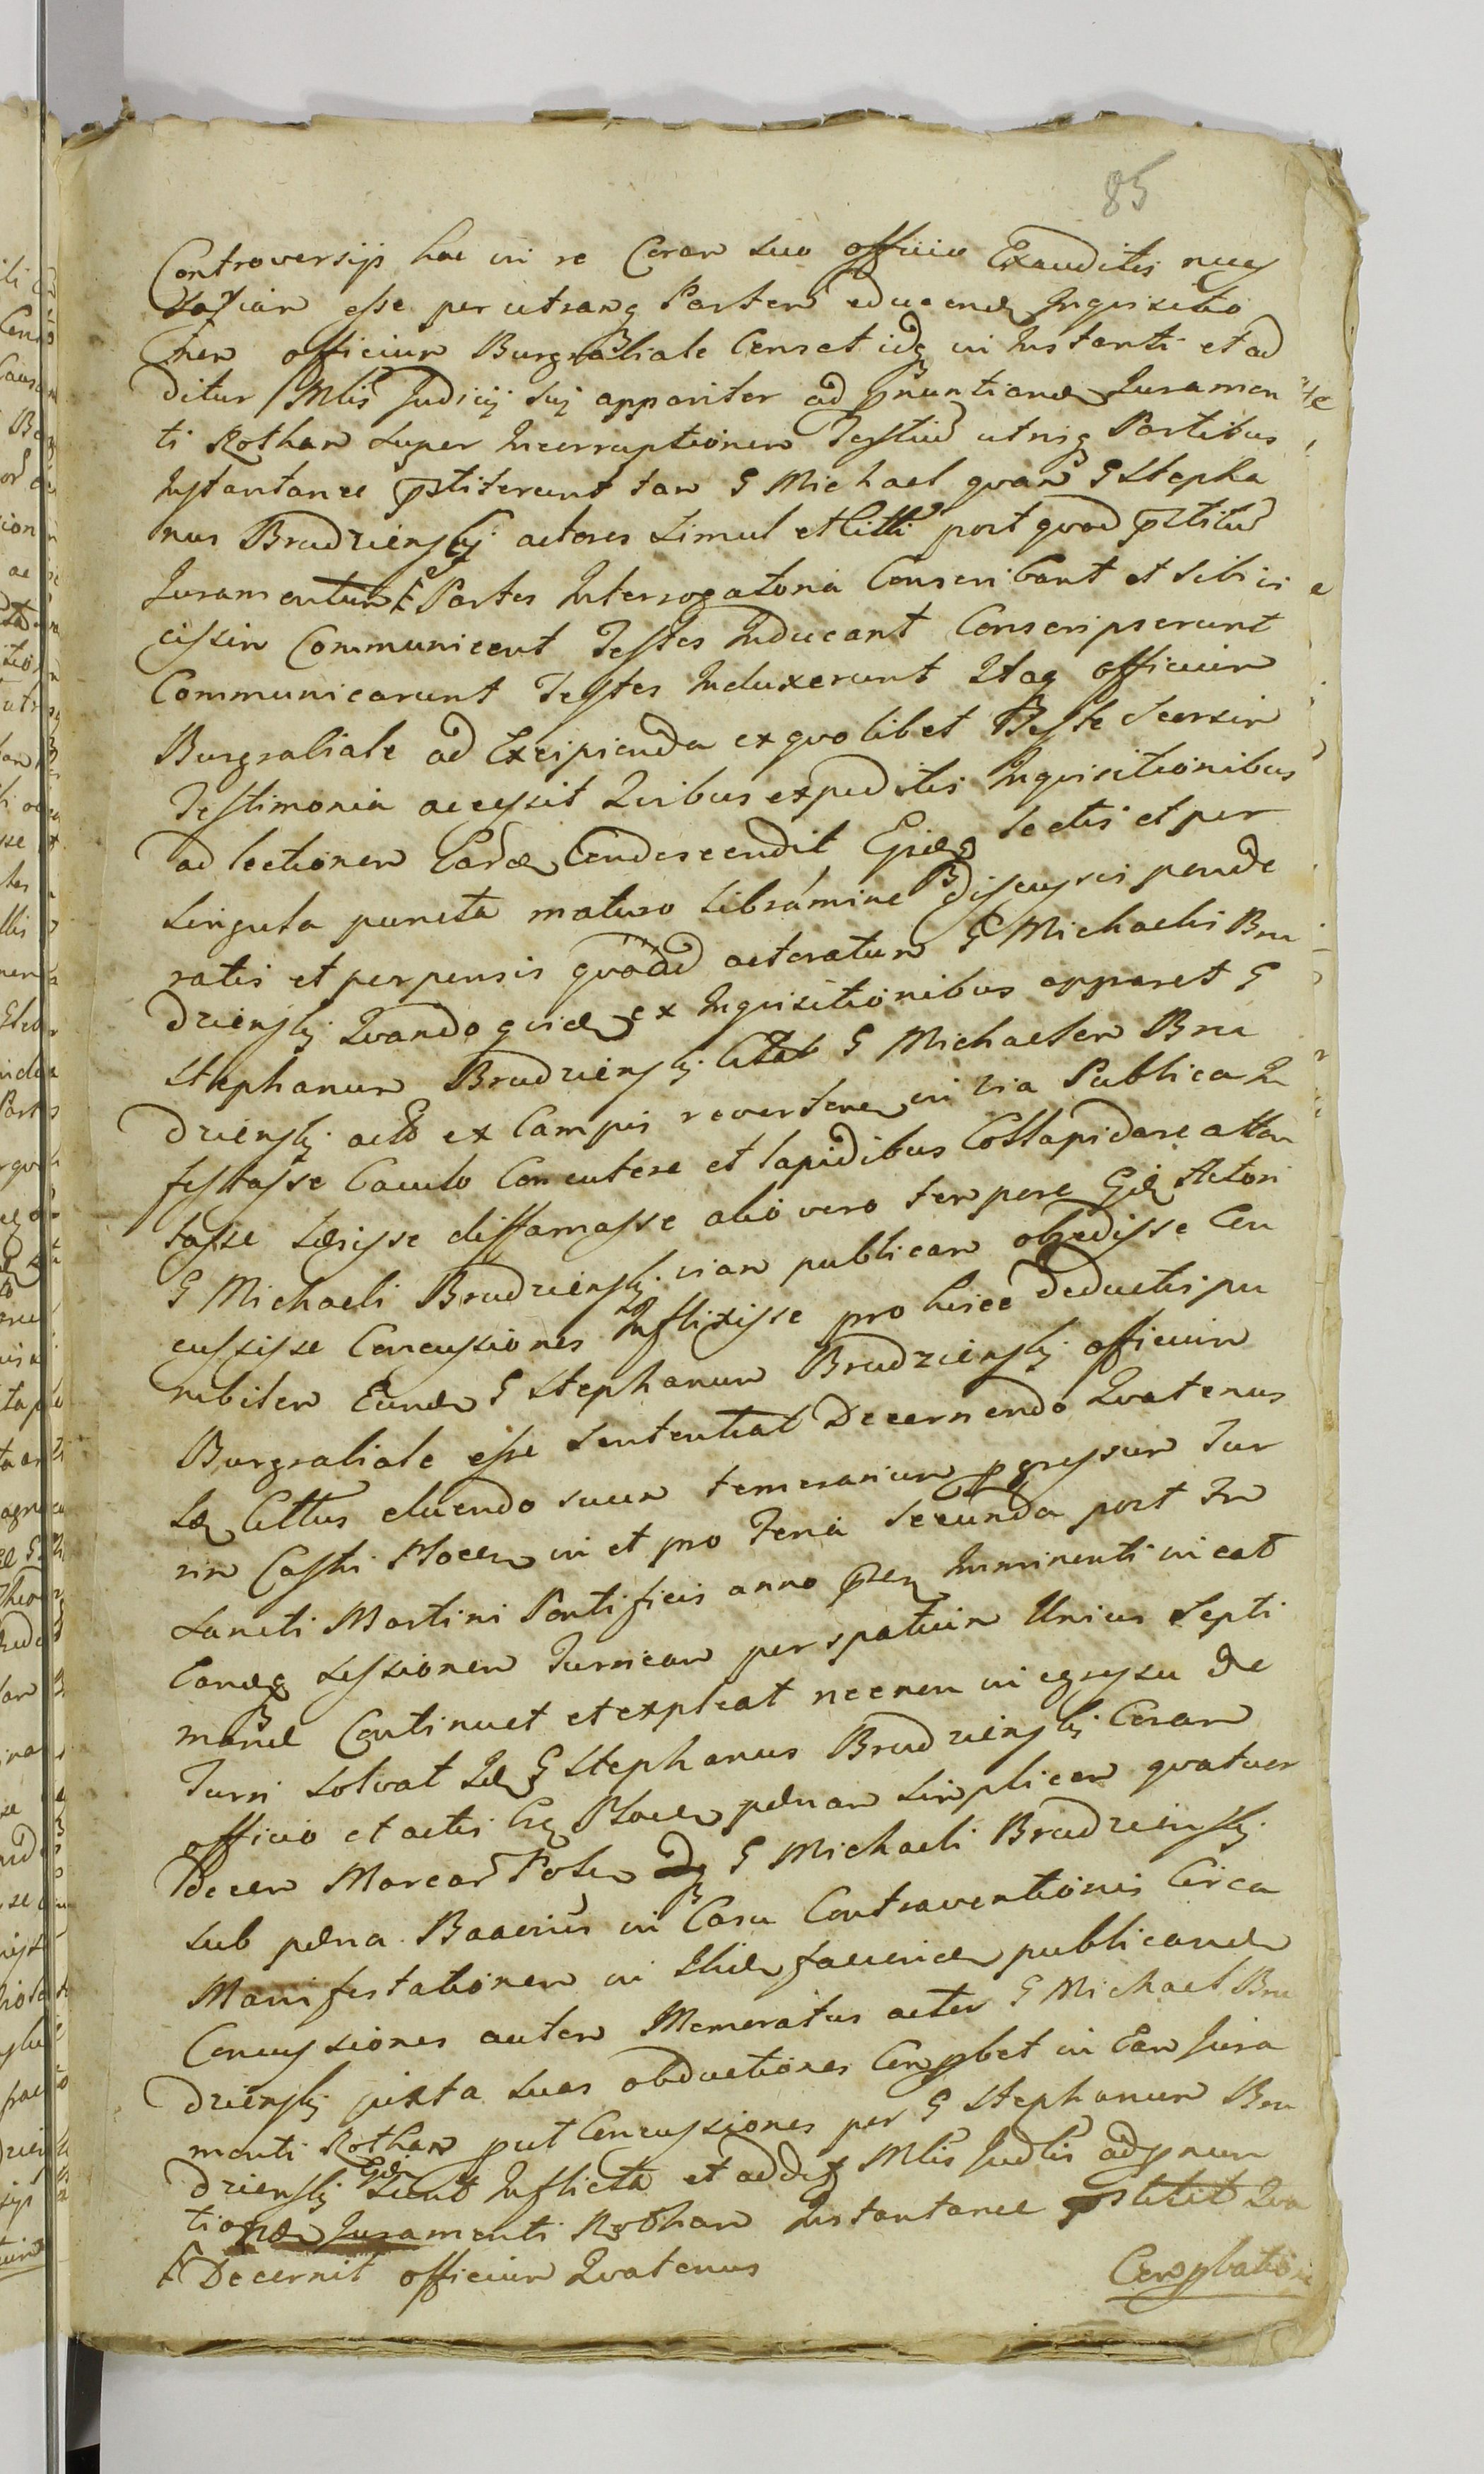 85
Controversijs hac in re Coram suo officio Exauditis neces
sariam esse per utramq Partem educendā Inquisitio
nem officium Burgrabiale Censet idq in Instanti et ad
ditur Mlis Judicij sui apparitor ad pnuntiand Juramen
ti Rotham super Incorruptionem Testiū utrisq Partibus
Instantanee pstiterunt tam G Michael qvam G Stepha
nus Brudzienskij actores simul et Citti post qvod pstitū
Juramentum Partes Interrogatoria Conscribant et sibi in
cissim Communicent Testes Inducant Conscripserunt
Communicarunt Testes Induxerunt Itaq officium
Burgrabiale ad Excipienda ex qvo libet Teste seorsim
Testimonia accessit Qvibus expeditis Inquisitionibus
ad lectionem Eard Condescendit Eisdq lectis et per
singula puncta maturo libramine discussis ponde
ratis et perpensis qvoad actoratum G Michaelis Bru
dzienskij Qvandoqvid ex Inquisitionibus apparet G
Stephanum Brudzienskij Citat G Michaelem Bru
dzienskij act ex Campis revertend in via Publica In
festasse baculo Concutere et lapidibus Collapidare atten
tasse Læsisse diffamasse alio vero tempore Gd Actori
G Michaeli Brudzienskij viam publicam obsedisse Con
cussisse Concussiones Inflixisse pro hisce deductis pu
nibilem Eund G Stephanum Brudzienskij officium
Burgrabiale esse sententiat Decernendo Qvatenus
Id Cittus eluendo suum temerarium pgressum Tur
rim Castri Plocen in et pro Feria secunda post Fm
Sancti Martini Pontificis anno pnti Imminenti in eat
Eandq sessionem Turricam per spatium Unius Septi
manæ Continuet et expleat necnon in egressu de
Turri solvat Id G Stephanus Brudzienskij Coram
officio et actis Crz Plocen pænam simplicem qvatuor
decem Marcar Polon G Michaeli Brudzienskij
sub pæna Bannis in Casu Contraventionis Circa
Manifestationem in Ibid faciend publicand
Concussiones autem Memoratus actor G Michael Bru
dzienskij juxta suas obductiones Comprobet in Eam Jura
menti Rotham put Concussiones per G Stephanum Bru
dzienskij sunt Inflictæ et additr Mlis Judlis ad pnun
tiond Juramenti Rotham Instantanee pstitit Qva
Decernit officium Qvatenus
Comprobatione